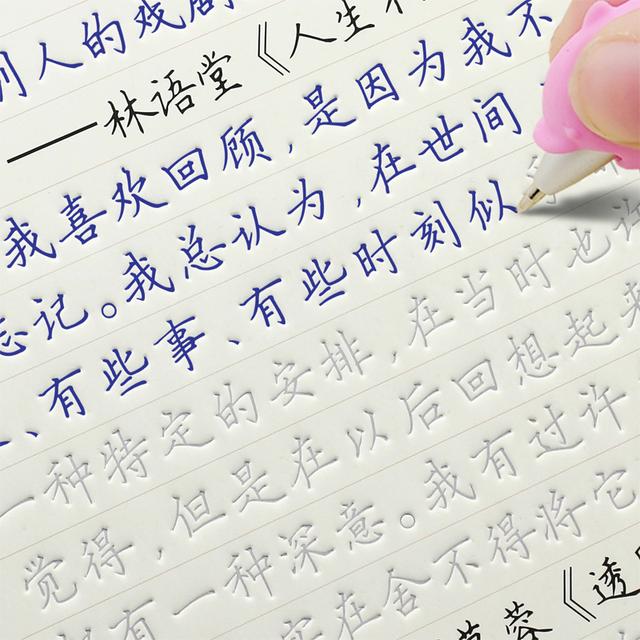 别人的戏剧
——林语堂《人生不
我喜欢回顾,是因为我不
忘记。我总认为,在世间
、有些事、有些时刻似
一种特定的安排,在当时也许
觉得,但是在以后回想起来
都有一种深意。我有过许
实在舍不得将它
慕蓉《透